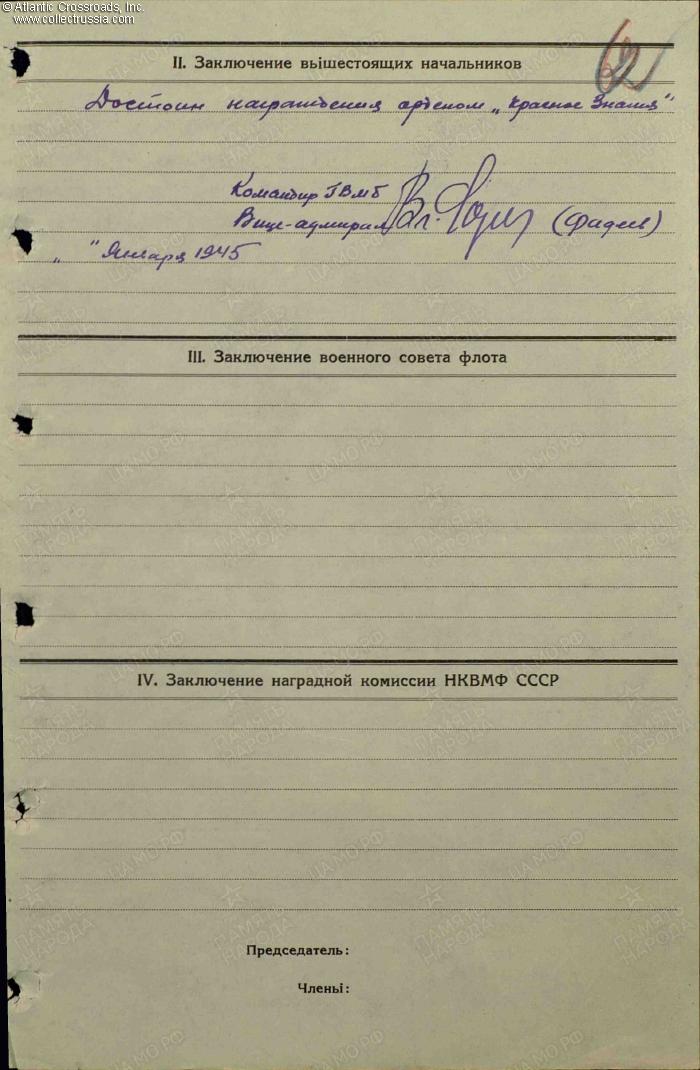 © Atlantic Crossroads, Inc.
www.collectrussia.com
62
II. Заключение вышестоящих начальников
Достоин награждения орденом „Красное Знамя"
Командир ГВМБ
Вице-адмирал Вл. Фадеев (Фадеев)
„ " Января 1945
III. Заключение военного совета флота
IV. Заключение наградной комиссии НКВМФ СССР
Председатель:
Члены:
ПАМЯТЬ НАРОДА
ЦАМО.РФ